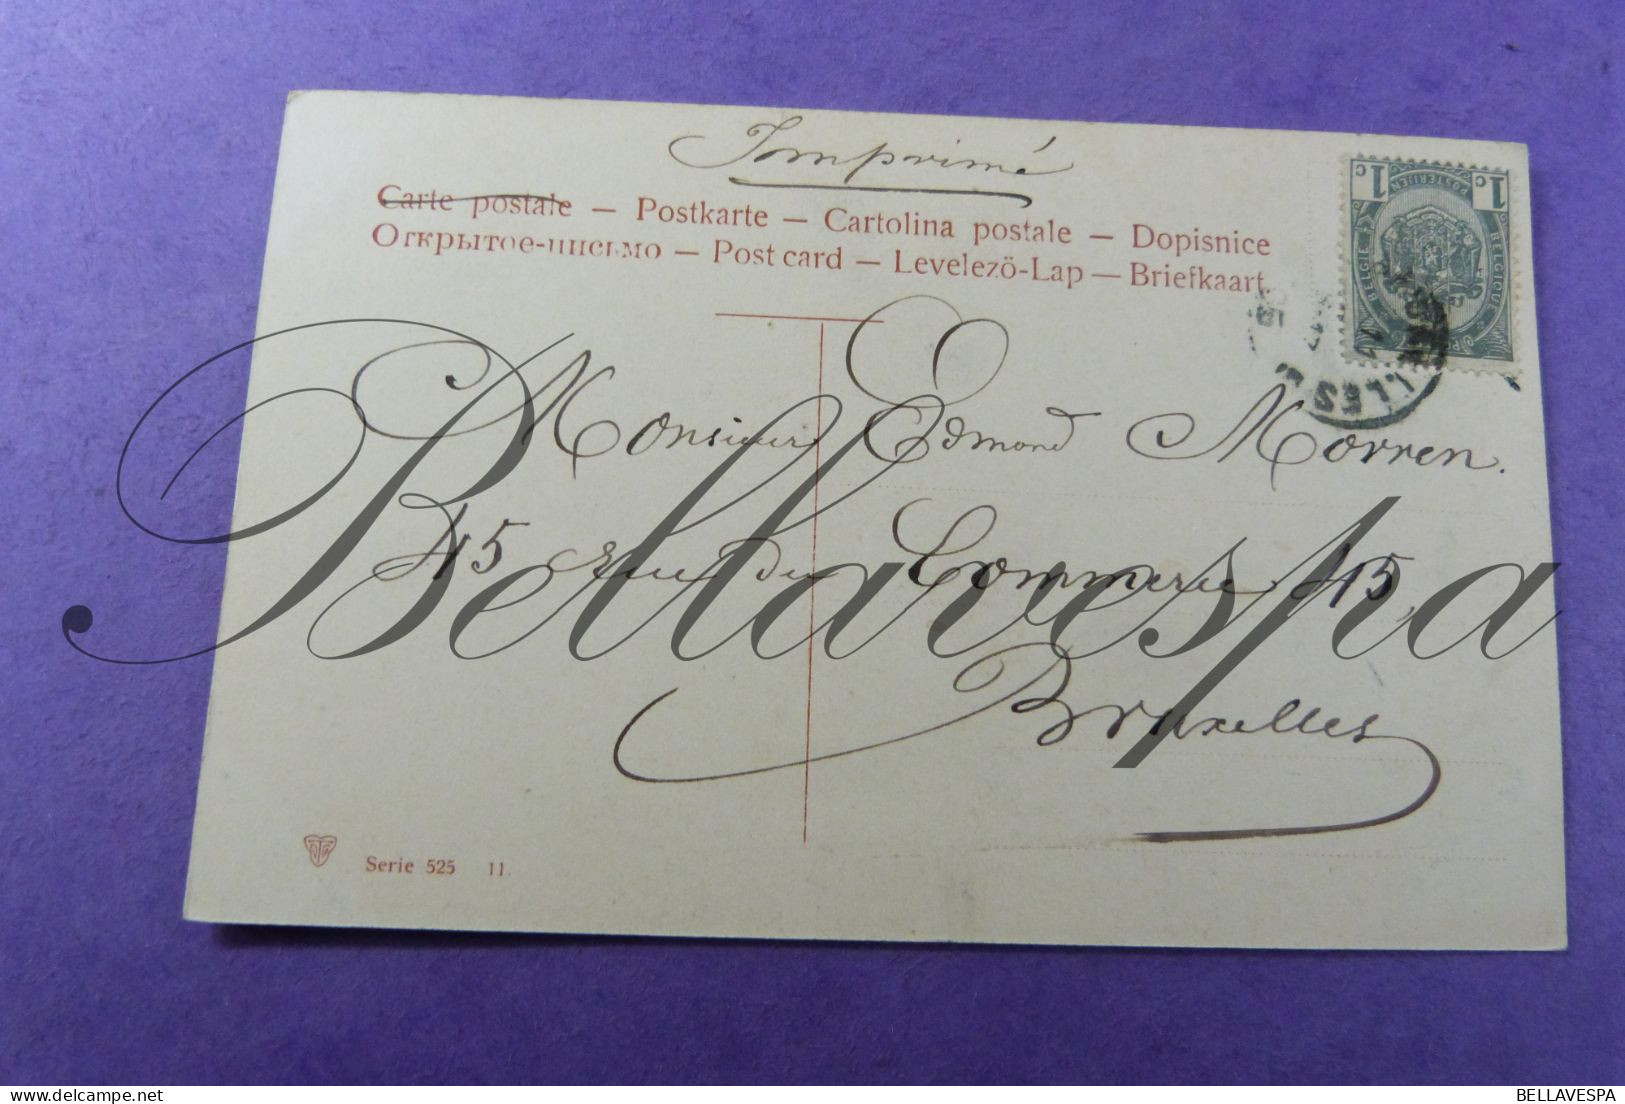 Imprimé
Carte postale — Postkarte — Cartolina postale — Dopisnice
Открытое-письмо — Post card — Levelezö-Lap — Briefkaart.
1c 1c
POSTERIJEN
BELGIË BELGIQUE
LLES
Monsieur Edmond Morren.
45 Rue du Commerce 45
Bruxelles
Bellavespa
Serie 525 11.
BELLAVESPA